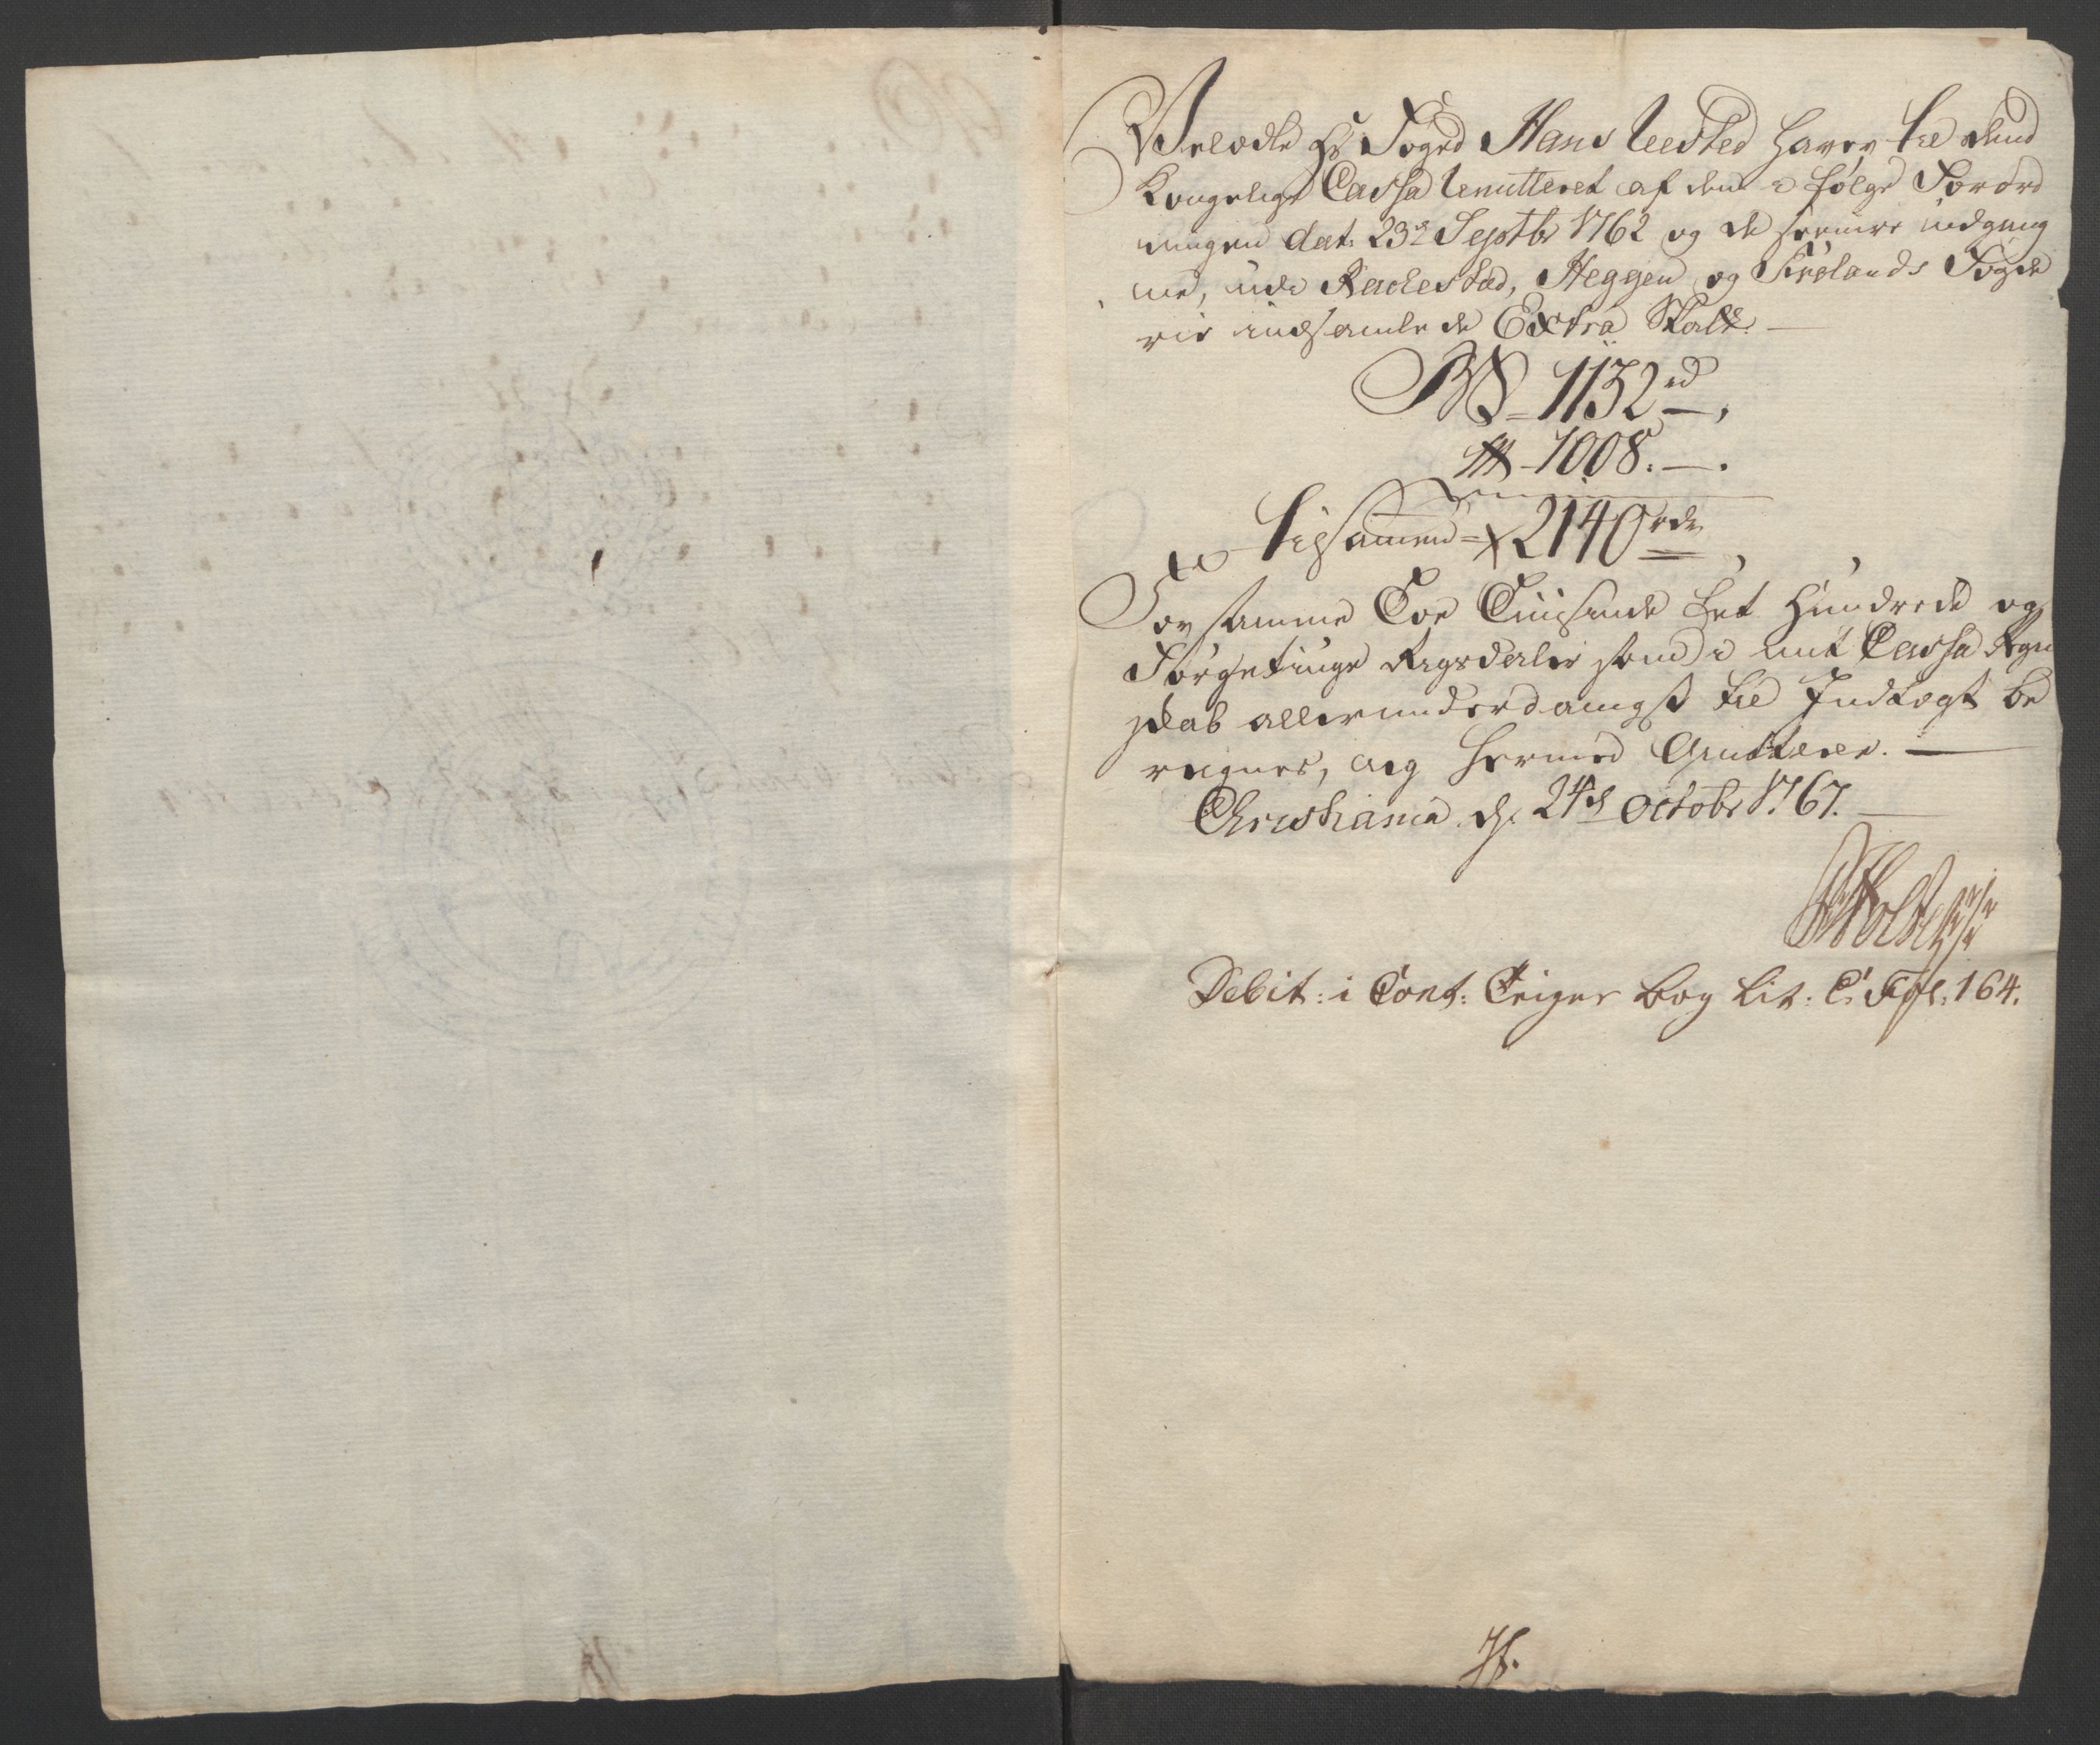 Velædle Hr Foged Hans Leested haver til dend
Kongelige Cassa leverret af den i følge Forord
ningen dat: 23de Septbr 1762 og de seenere indgang
ne, udi Rachestad, Heggen og Frølands Fogde
rie indsamlede Extra Skatt.
1132 rd
1008.
tilsammen 2140 rdr
For samme Toe Tuusinde Eet Hundrede og
Førgetiuge Rigsdaler som i mit Cassa Regn
skab allerunderdanigst til Indtægt be
reignes, ieg hermed Qvitterer.
Christiania d. 24de Octobr 1767.
Debit: i Cont: Teigns bog Lit: C. Fol: 164.